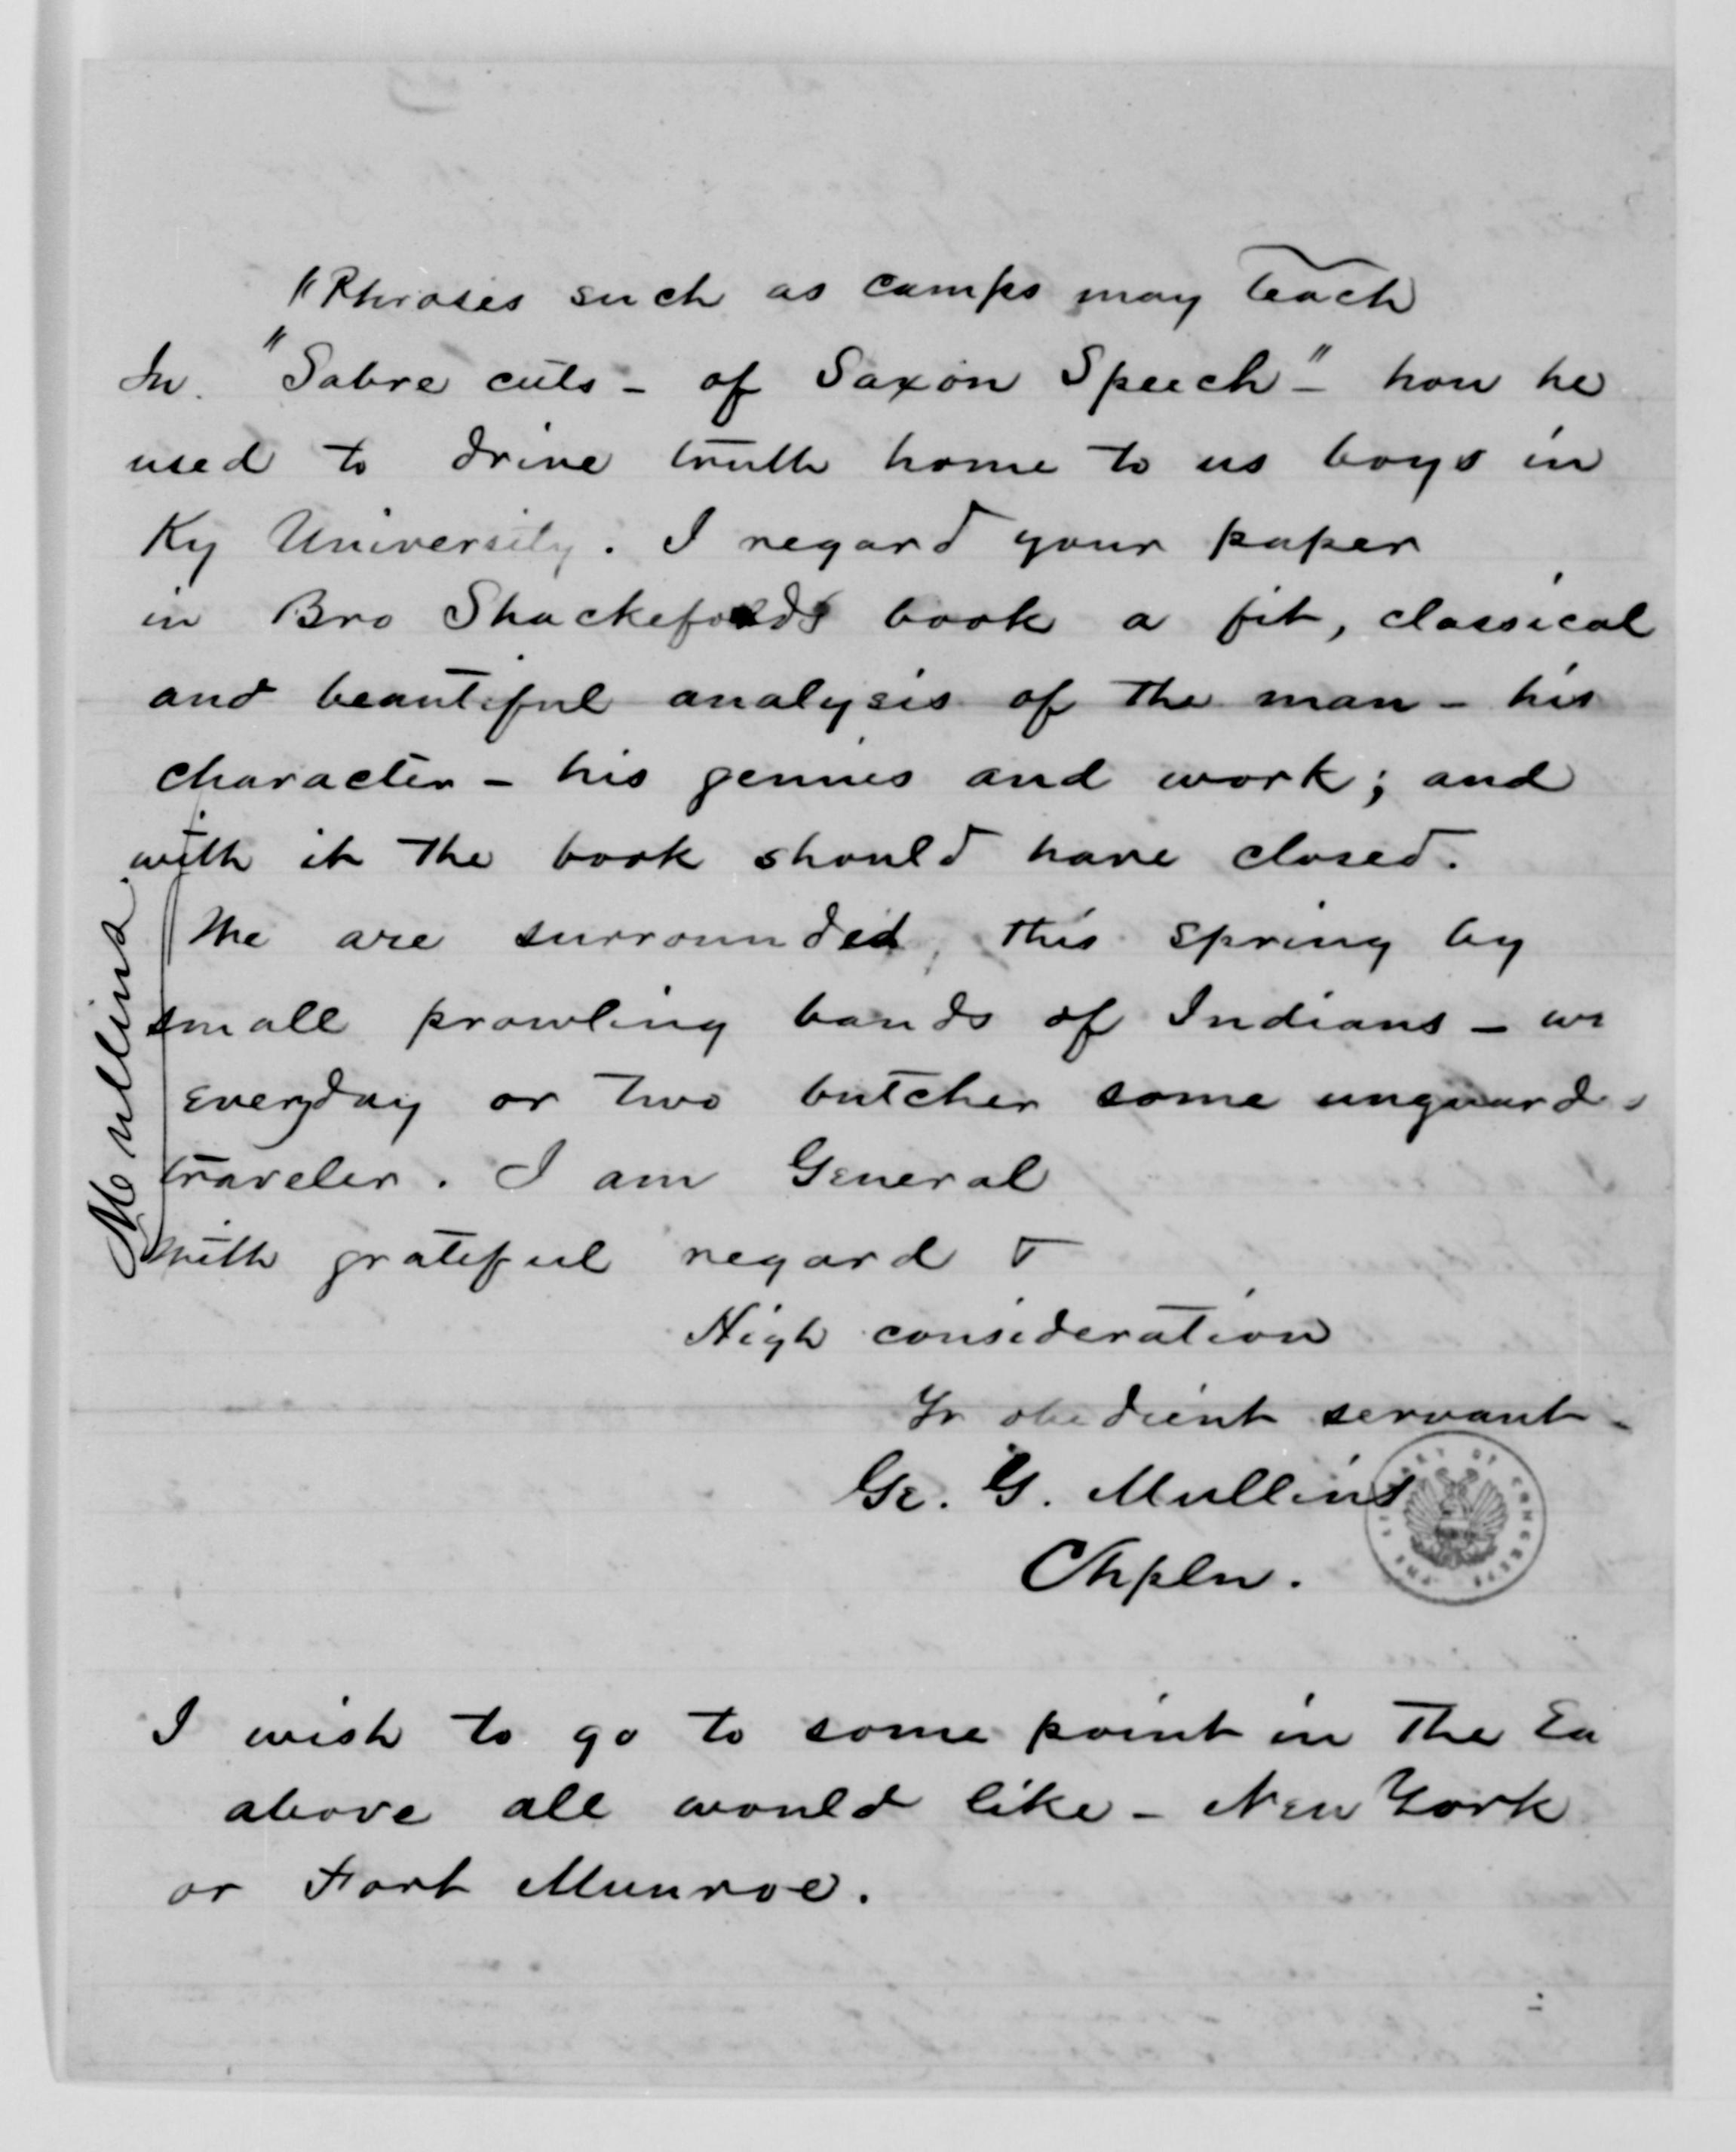 "Phrases such as camps may teach
In. "Sabre cuts - of Saxon Speech" - how he
used to drive truth home to us boys in
Ky University. I regard your paper
in Bro Shackefords book a fit, classical
and beautiful analysis of the man - his
character - his genius and work; and
with it the book should have closed.
We are surrounded, this spring by
small prowling bands of Indians -
everyday or two butcher some unguard
traveler. I am General
with grateful regard &
High consideration
Yr obedient servant -
Ge. G. Mullins
Chpln.
I wish to go to some point in the Ea
above all would like - New York
or Fort Munroe.
Mullins.
THE LIBRARY OF CONGRESS